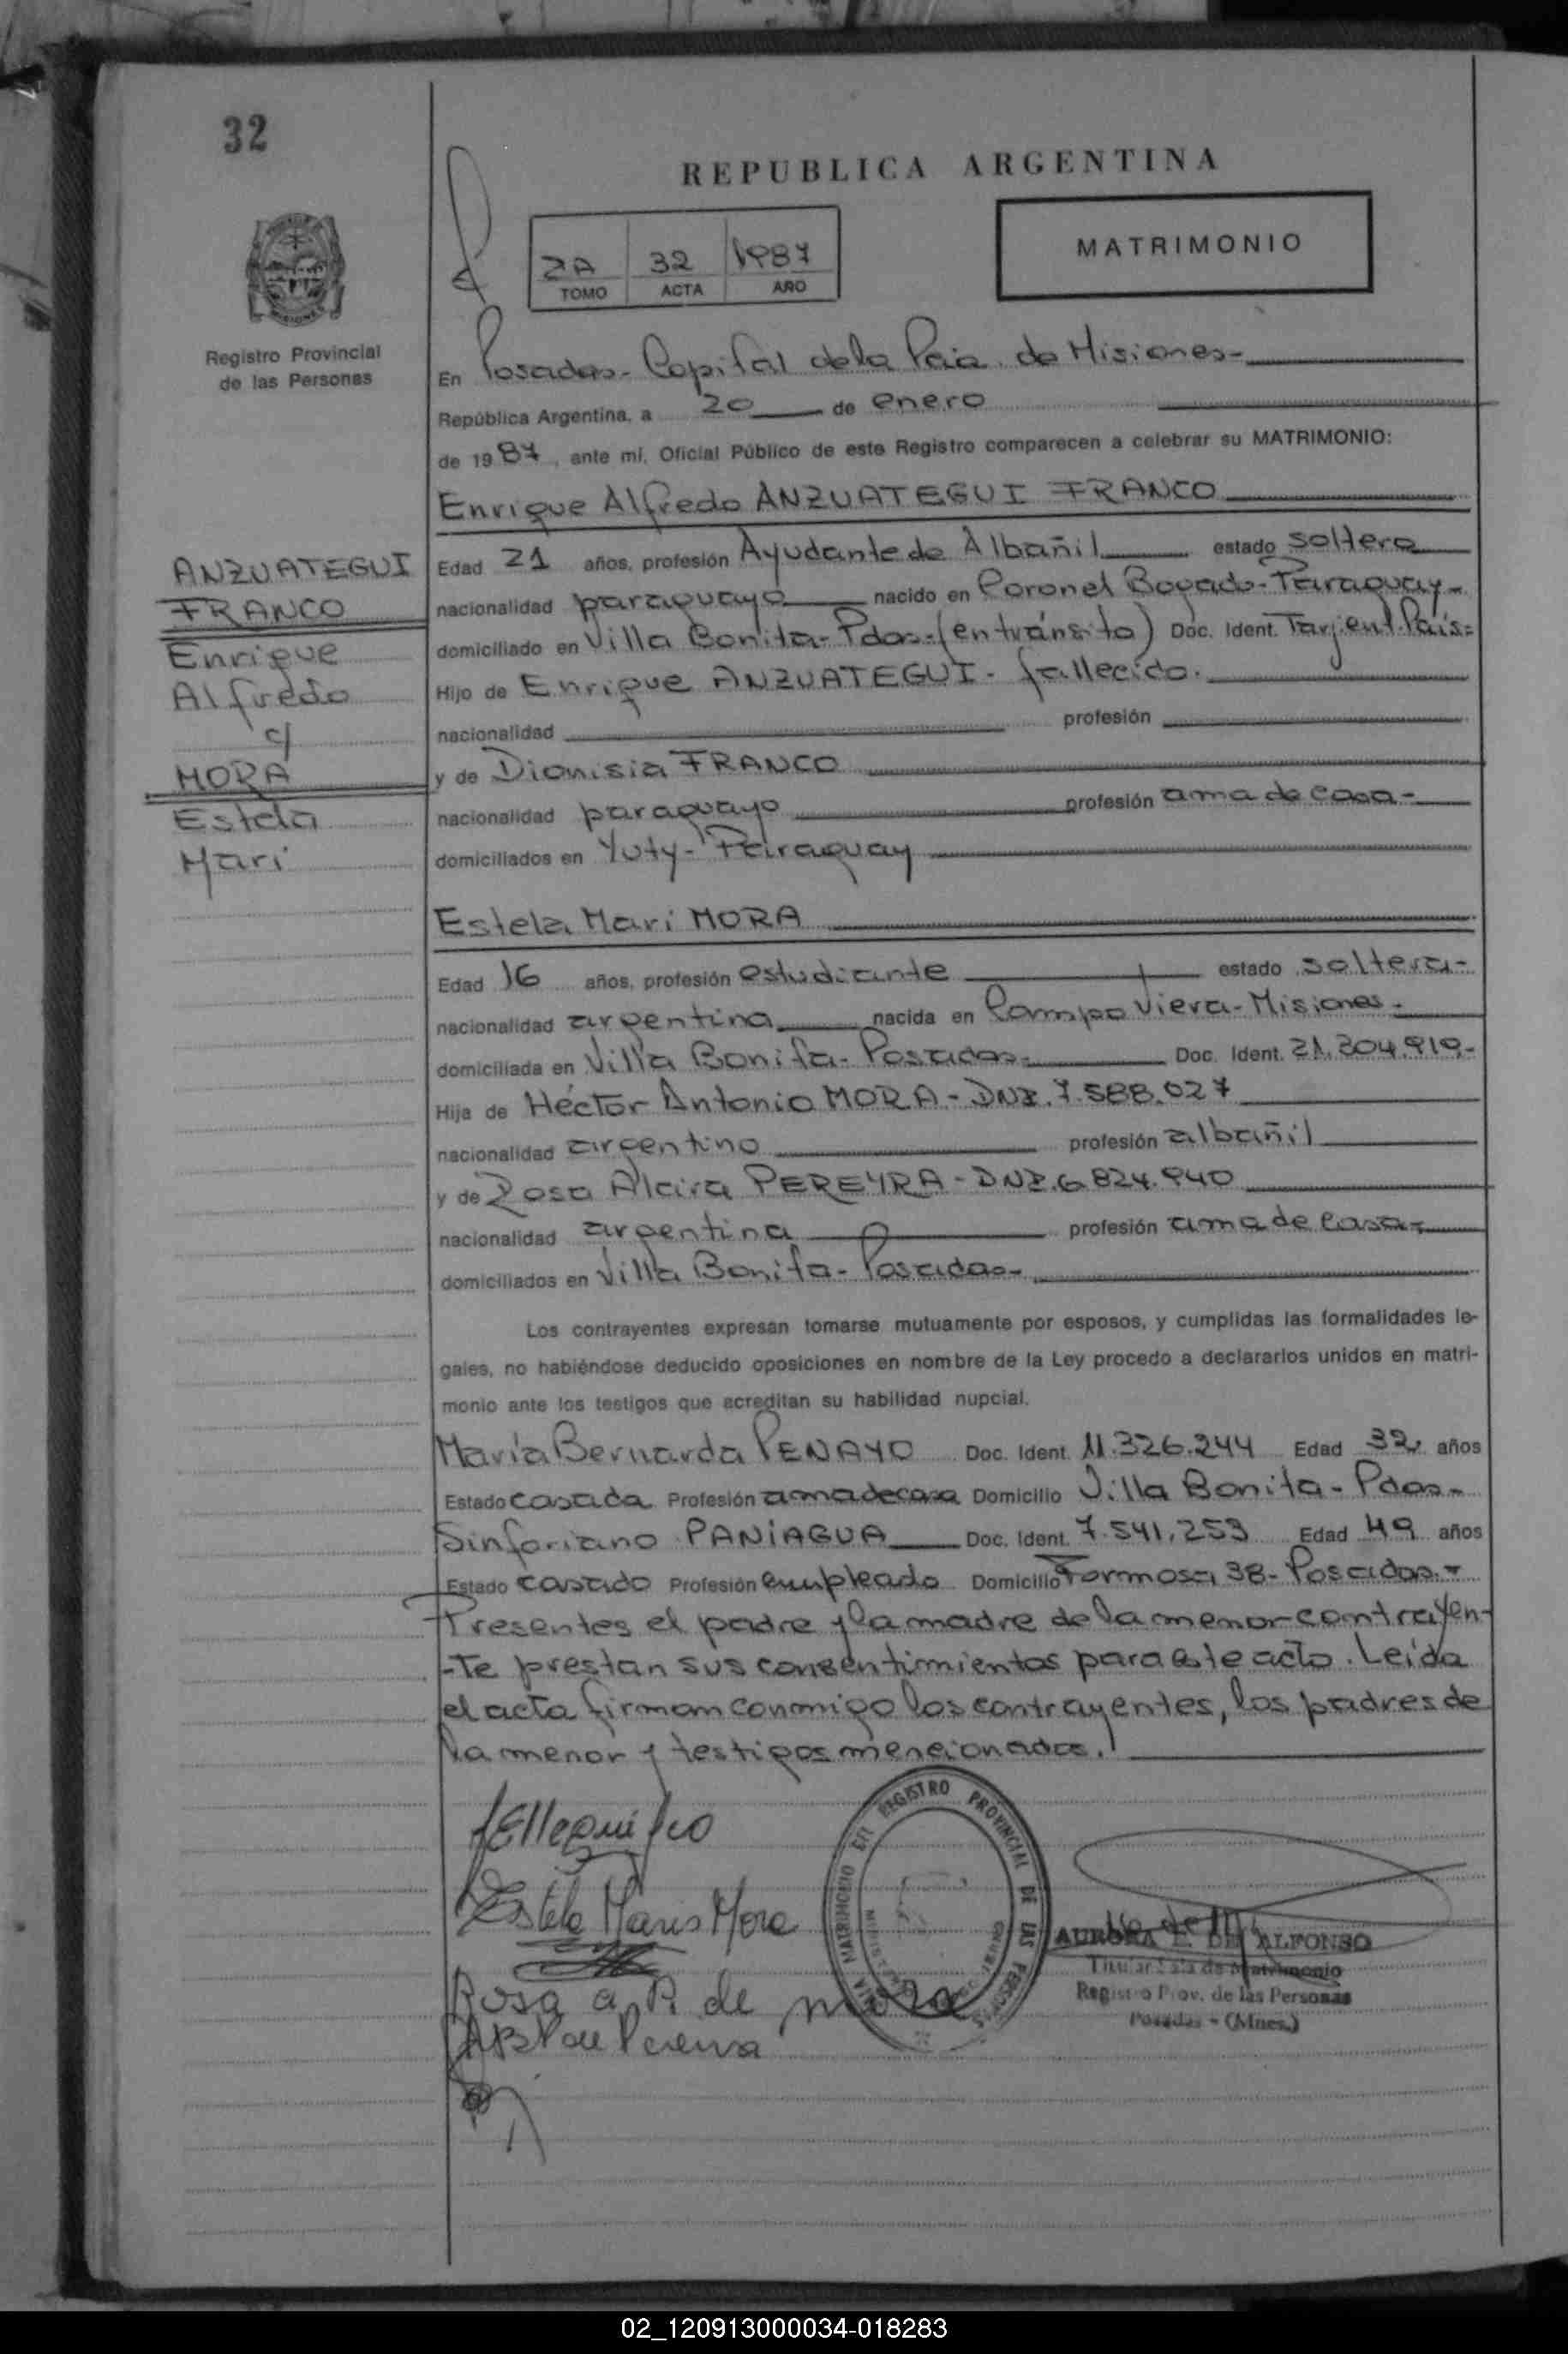 32
REPUBLICA ARGENTINA
2A 32 1987
TOMO ACTA AÑO
MATRIMONIO
Registro Provincial
de las Personas
En Posadas - Capital de la Pcia. de Misiones -
República Argentina, a 20 de enero
de 1987, ante mí, Oficial Público de este Registro comparecen a celebrar su MATRIMONIO:
Enrique Alfredo ANZUATEGUI FRANCO
ANZUATEGUI
FRANCO
Enrique
Alfredo
c/
MORA
Estela
Mari
Edad 21 años, profesión Ayudante de Albañil estado soltero
nacionalidad paraguayo nacido en Coronel Bogado - Paraguay -
domiciliado en Villa Bonita - Pdas - (en tránsito) Doc. Ident. Tarj. ent. País =
Hijo de Enrique ANZUATEGUI - fallecido.
nacionalidad profesión
y de Dionisia FRANCO
nacionalidad paraguayo profesión ama de casa -
domiciliados en Yuty - Paraguay
Estela Mari MORA
Edad 16 años, profesión estudiante estado soltera -
nacionalidad argentina nacida en Campo Viera - Misiones -
domiciliada en Villa Bonita - Posadas - Doc. Ident. 21.304.919 -
Hija de Héctor Antonio MORA - DNI. 7.588.027
nacionalidad argentino profesión albañil
y de Rosa Alcira PEREYRA - DNI. 6.824.940
nacionalidad argentina profesión ama de casa -
domiciliados en Villa Bonita - Posadas -
Los contrayentes expresan tomarse mutuamente por esposos, y cumplidas las formalidades le-
gales, no habiéndose deducido oposiciones en nombre de la Ley procedo a declararlos unidos en matri-
monio ante los testigos que acreditan su habilidad nupcial.
María Bernarda PENAYO Doc. Ident. 11.326.244 Edad 32 años
Estado casada Profesión ama de casa Domicilio Villa Bonita - Pdas -
Sinforiano PANIAGUA Doc. Ident. 7.541.253 Edad 49 años
Estado casado Profesión empleado Domicilio Formosa 38 - Posadas. -
Presentes el padre y la madre de la menor contrayen-
-te prestan sus consentimientos para este acto. Leída
el acta firman conmigo los contrayentes, los padres de
la menor y testigos mencionados.
Estela Maris Mora
Rosa a. P. de mora
REGISTRO PROVINCIAL DE LAS PERSONAS
AURORA E. DE ALFONSO
Titular Sala de Matrimonio
Registro Prov. de las Personas
Posadas - (Mnes.)
02_120913000034-018283